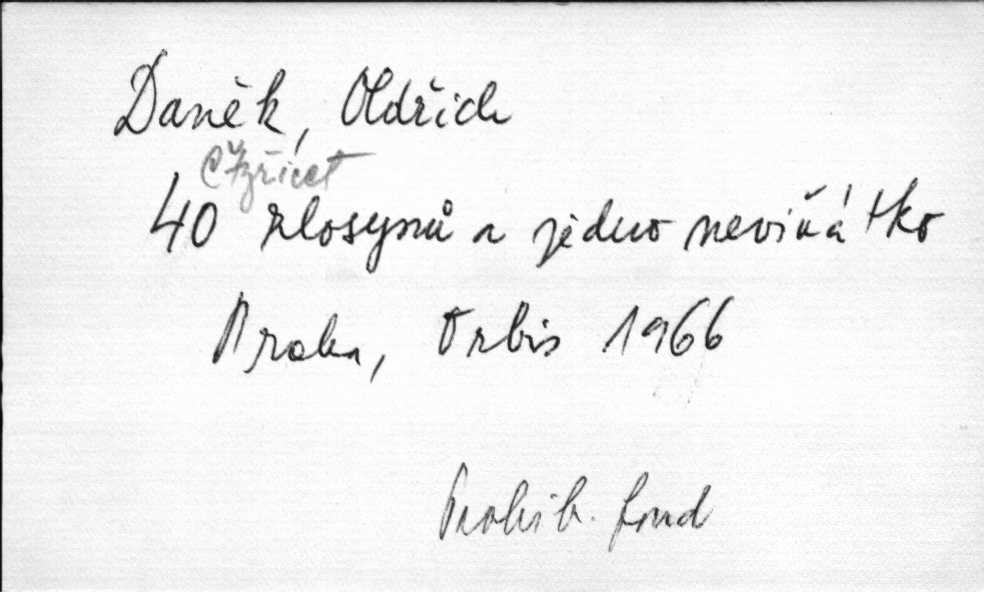 Daněk, Oldřich
Čtyřicet
40 zlosynů a jedno neviňátko
Praha, Orbis 1966
Prohib. fond